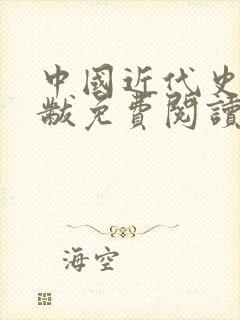 中國近代史
黻免費閱讀
海空